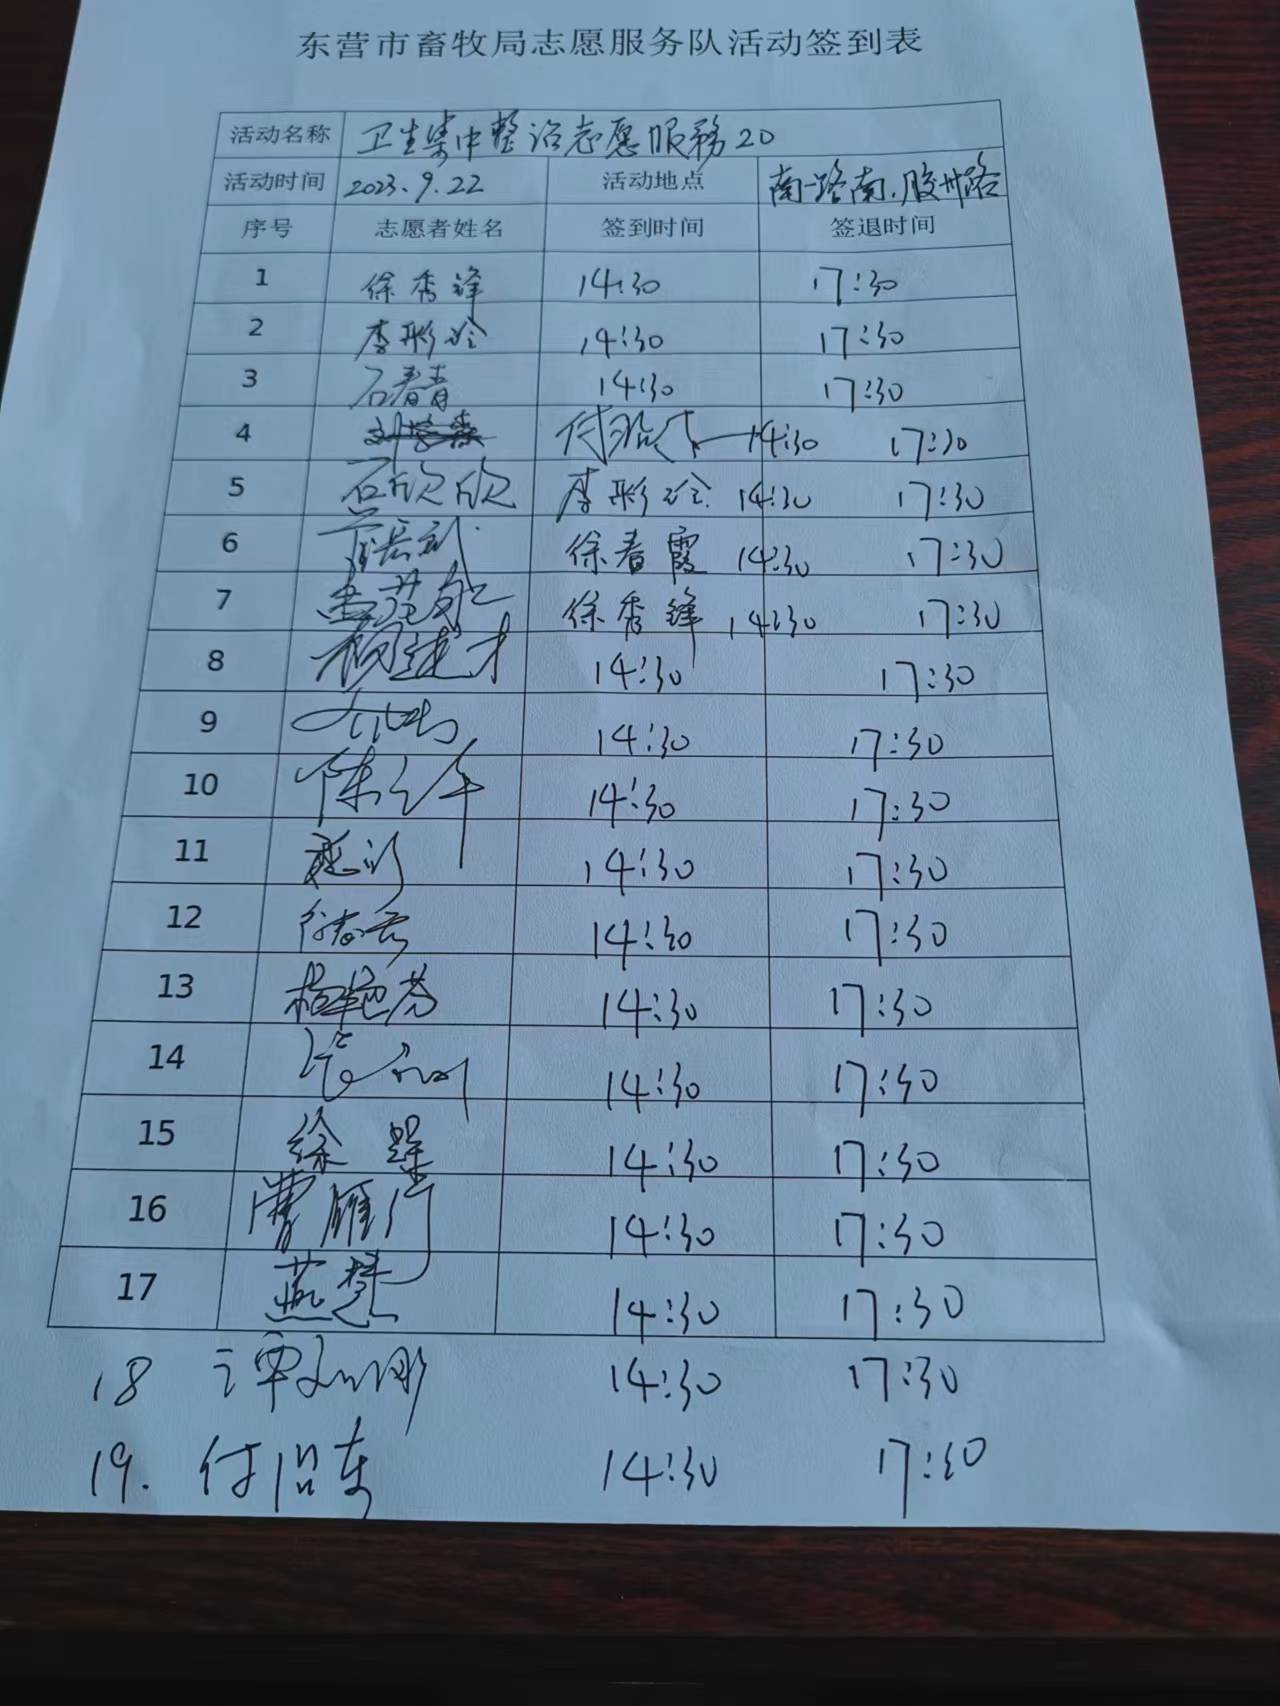 东营市畜牧局志愿服务队活动签到表
活动名称 卫生集中整治志愿服務20
活动时间 2023.9.22 活动地点 南一路南、胶州路
序号 志愿者姓名 签到时间 签退时间
1 徐秀锋 14:30 17:30
2 李彤玲 14:30 17:30
3 石春青 14:30 17:30
4 14:30 17:30
5 石欣欣 李彤玲 14:30 17:30
6 徐春霞 14:30 17:30
7 徐秀锋 14:30 17:30
8 杨建才 14:30 17:30
9 14:30 17:30
10 14:30 17:30
11 14:30 17:30
12 14:30 17:30
13 杨艳芬 14:30 17:30
14 14:30 17:30
15 徐 14:30 17:30
16 曹雁行 14:30 17:30
17 燕慧 14:30 17:30
18 谭 14:30 17:30
19. 付 14:30 17:30